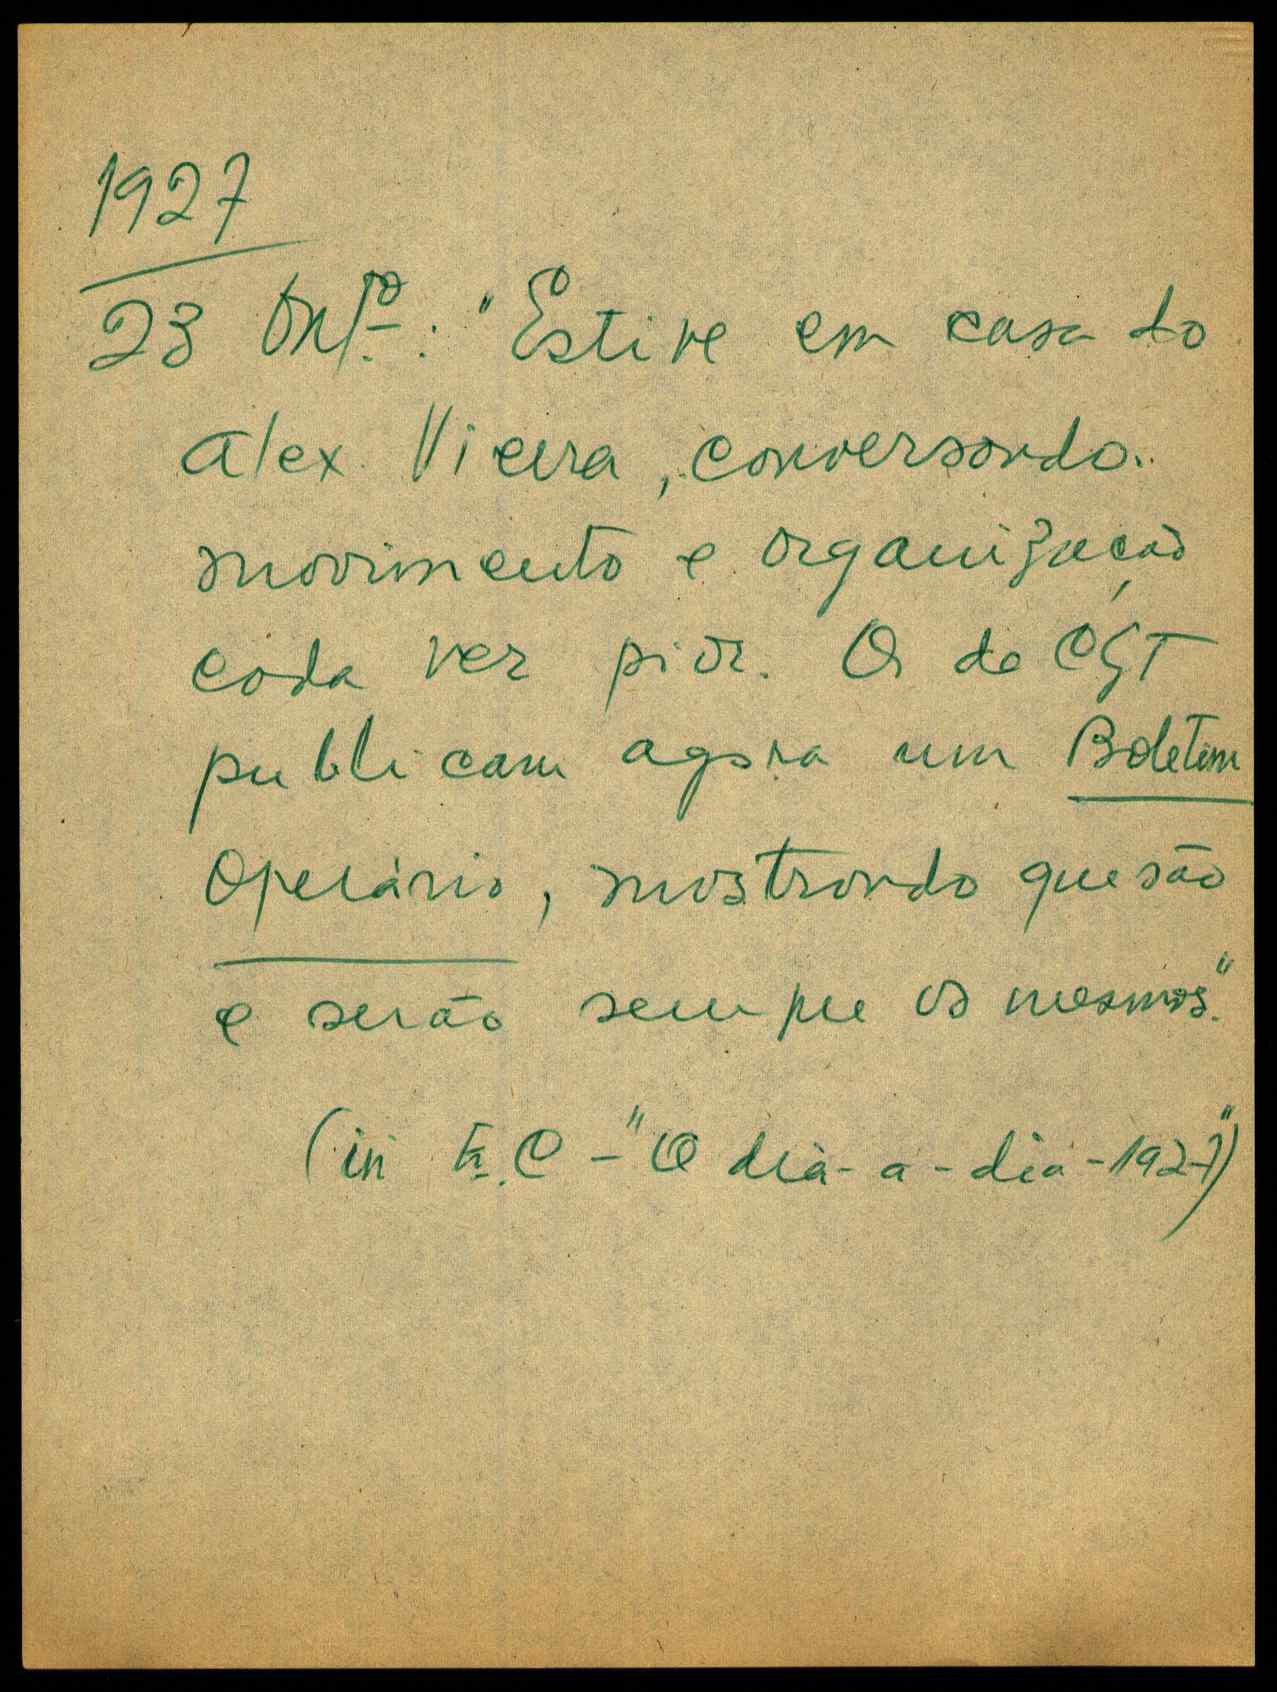 1927
23 Outº.: "Estive em casa do
Alex. Vieira, conversando..
movimento e organização
cada vez pior. Os da CGT
publicam agora um Boletim
Operário, mostrando que são
e serão sempre os mesmos."
(in E.C – "O dia-a-dia-1927")